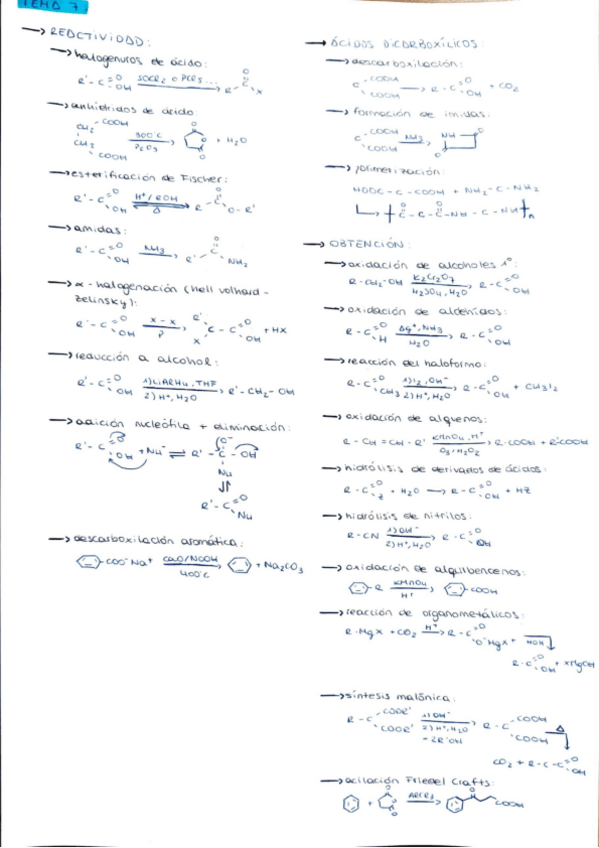 TEMA 7
→ REACTIVIDAD:
→ halogenuros de ácido:
R'-C=O OH → SOCl2 o PCl5... → R-C=O X
→ anhídridos de ácido:
CH2-COOH CH2-COOH → 300°C P2O5 → + H2O
→ esterificación de Fischer:
R'-C=O OH → H+/ROH Δ → R-C=O O-R'
→ amidas:
R'-C=O OH → NH3 → R'-C=O NH2
→ α-halogenación (hell volhard-
zelinsky):
R'-C=O OH → X-X P → R' X C-C=O OH + HX
→ reducción a alcohol:
R'-C=O OH → 1) LiAlH4, THF 2) H+, H2O → R'-CH2-OH
→ adición nucleófila + eliminación:
R'-C=O OH + Nu- ⇌ R'-C-OH O- Nu
⇅
R'-C=O Nu
→ descarboxilación aromática:
-COO-Na+ → CaO/NaOH 400°C → + Na2CO3
→ ÁCIDOS DICARBOXÍLICOS:
→ descarboxilación:
C COOH COOH → R-C=O OH + CO2
→ formación de imidas:
C COOH COOH → NH3 → NH O O
→ polimerización:
HOOC-C-COOH + NH2-C-NH2
C-C-C-NH-C-NH n
→ OBTENCIÓN:
→ oxidación de alcoholes 1°:
R-CH2-OH → K2Cr2O7 H2SO4, H2O → R-C=O OH
→ oxidación de aldehídos:
R-C=O H → Ag+, NH3 H2O → R-C=O OH
→ reacción del haloformo:
R-C=O CH3 → 1) I2, OH- 2) H+, H2O → R-C=O OH + CH3I2
→ oxidación de alquenos:
R-CH=CH-R' → KMnO4, H+ O3/H2O2 → R-COOH + R'COOH
→ hidrólisis de derivados de ácidos:
R-C=O Z + H2O → R-C=O OH + HZ
→ hidrólisis de nitrilos:
R-CN → 1) OH- 2) H+, H2O → R-C=O OH
→ oxidación de alquilbencenos:
R → KMnO4 H+ → COOH
→ reacción de organometálicos:
R-MgX + CO2 → H+ → R-C=O O-MgX+ HOH
R-C=O OH + XMgOH
→ síntesis malónica:
R-C COOR' COOR' → 1) OH- 2) H+, H2O -2R'OH → R-C COOH COOH Δ
CO2 + R-C-C=O OH
→ acilación Friedel Crafts:
+ → AlCl3 → COOH